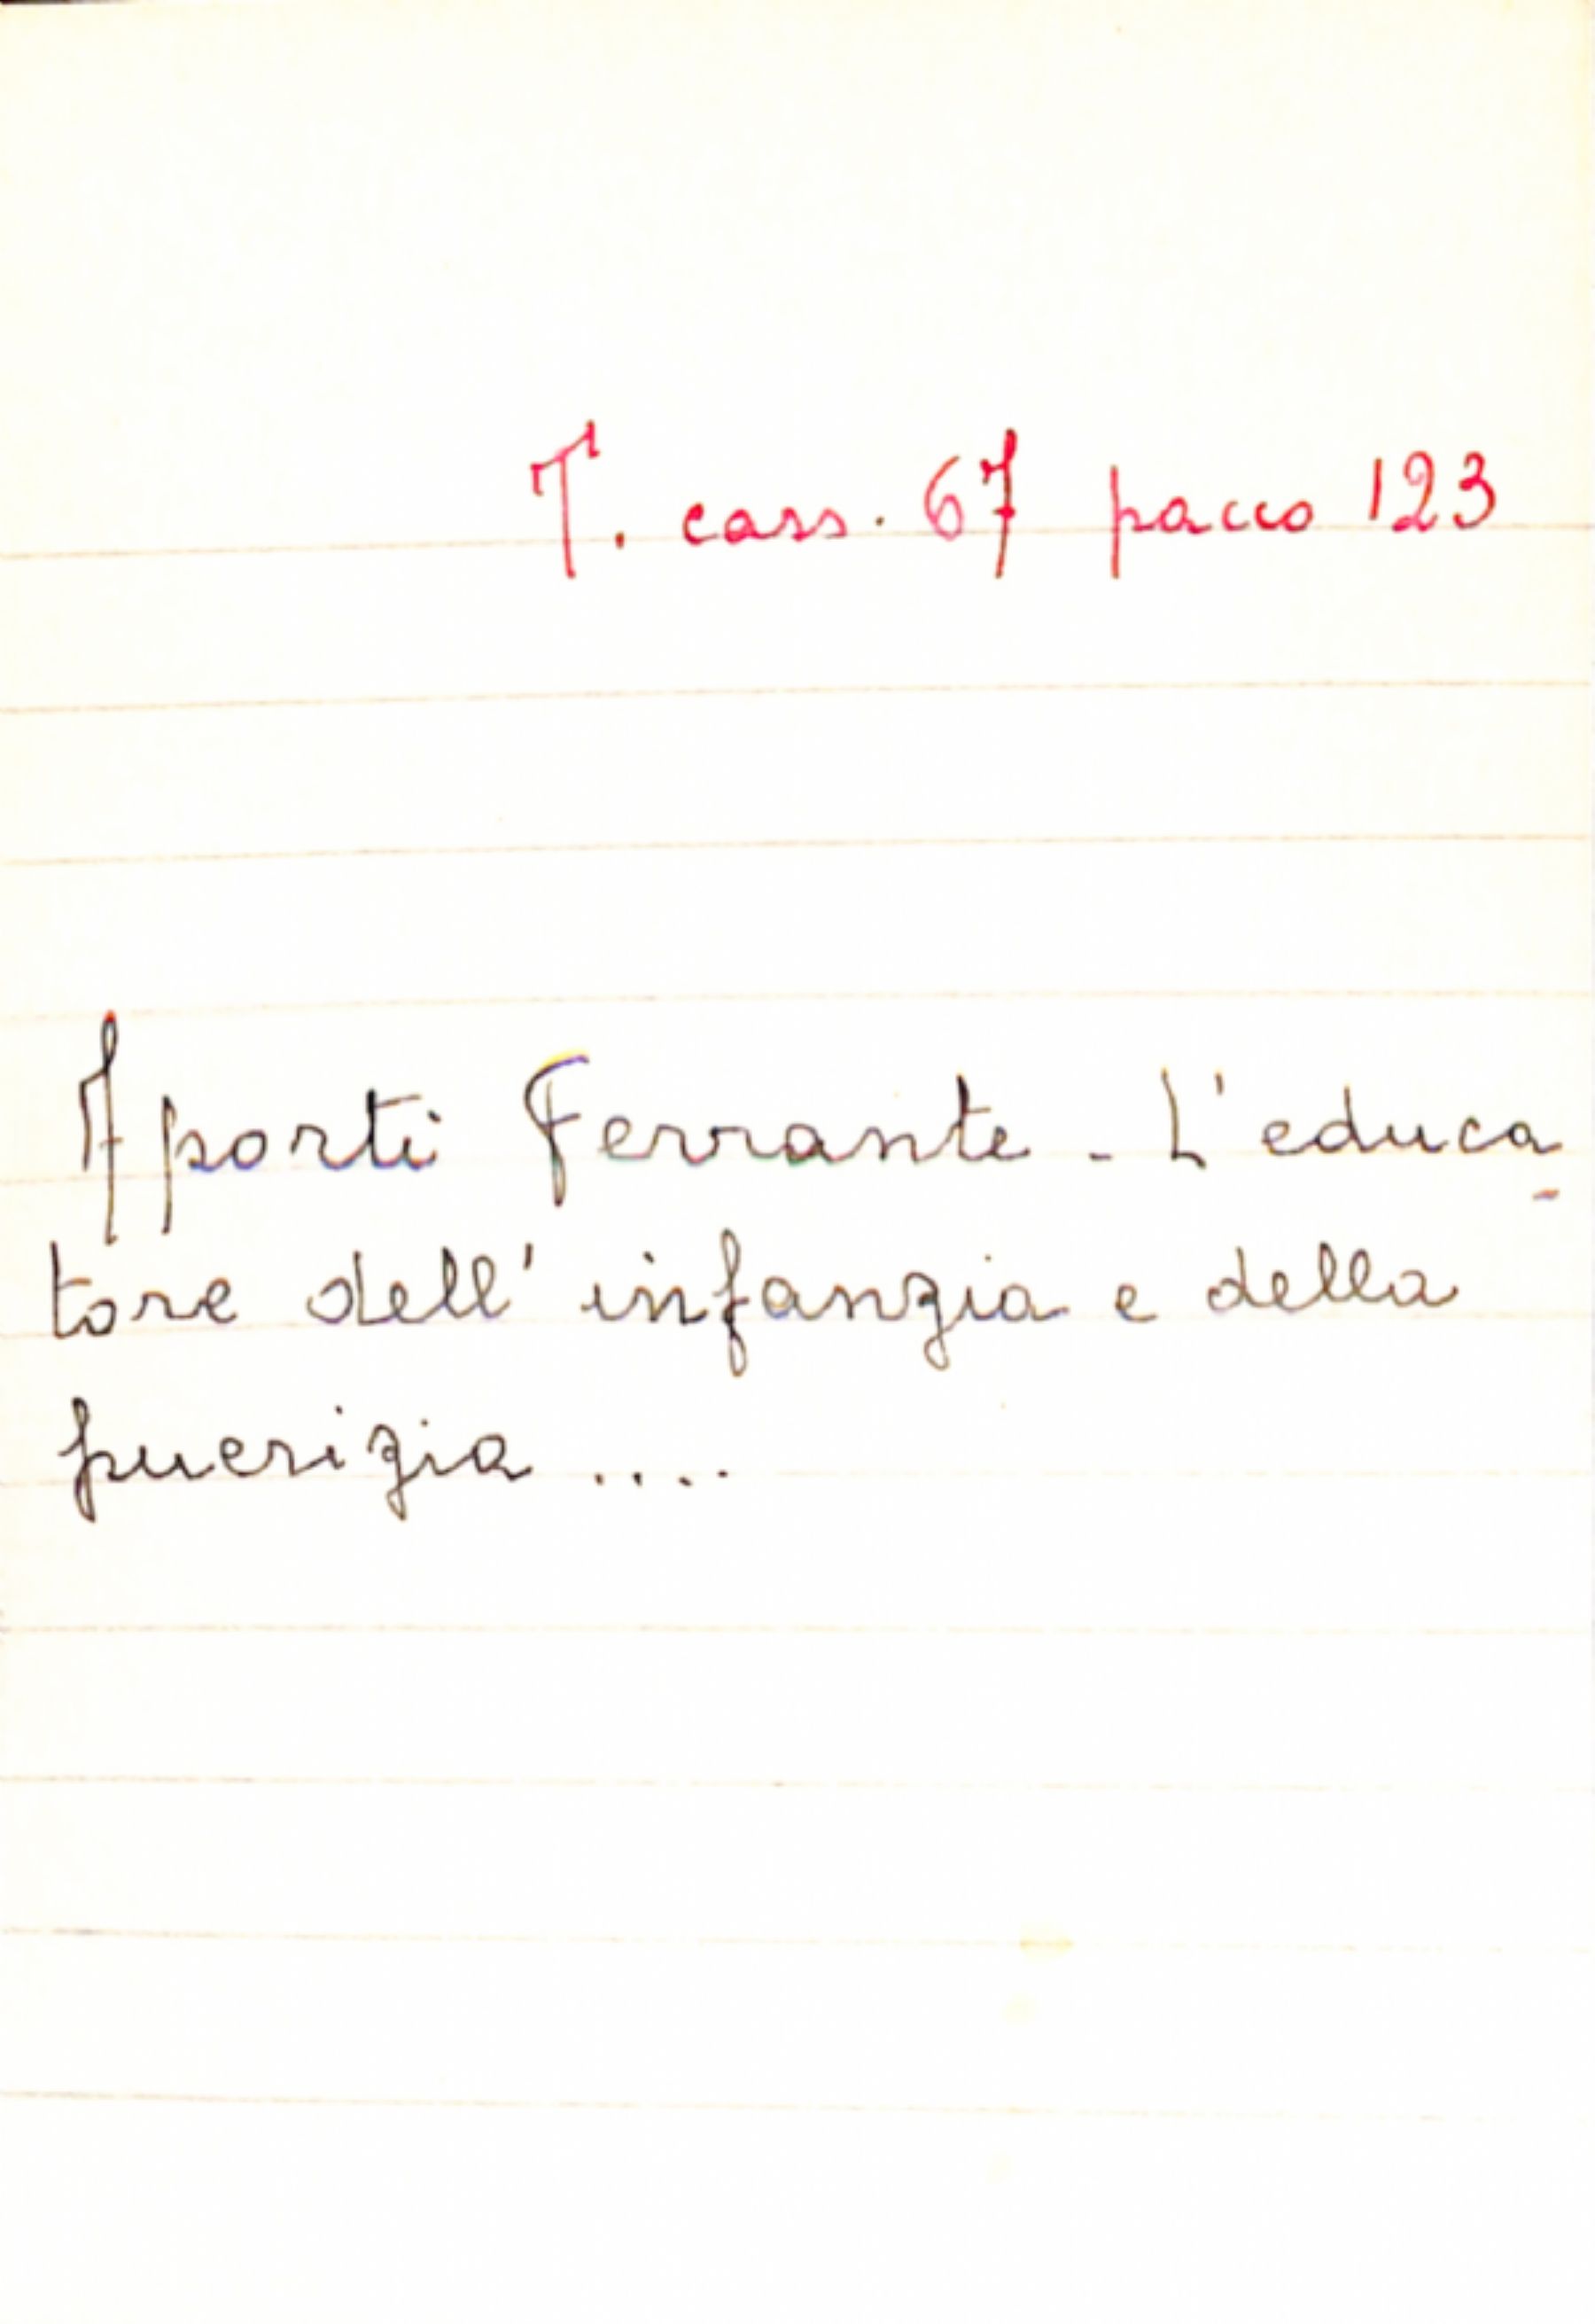 T. cass. 67 pacco 123
Aporti Ferrante - L'educa-
tore dell'infanzia e della
puerizia ....